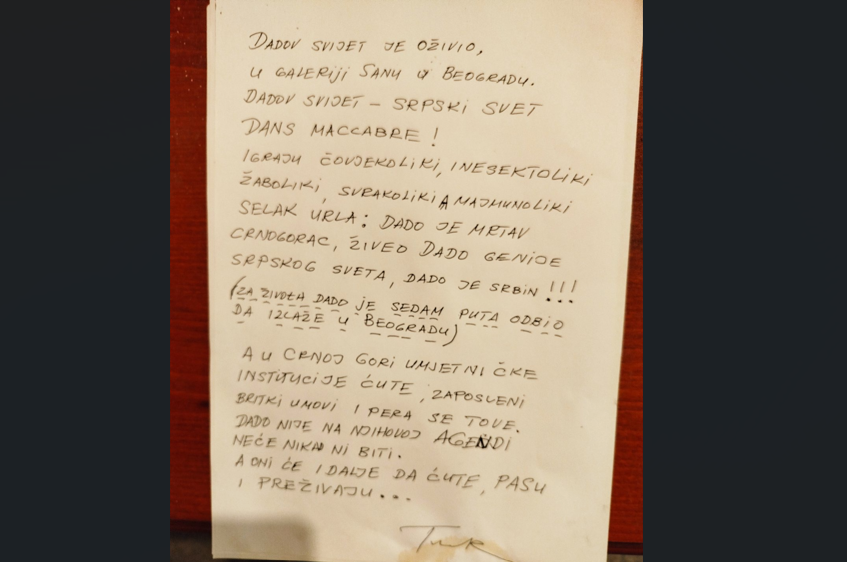 DADOV SVIJET JE OŽIVIO,
U GALERIJI SANU U BEOGRADU.
DADOV SVIJET – SRPSKI SVET
DANS MACCABRE!
IGRAJU ČOVJEKOLIKI, INESEKTOLIKI
ŽABOLIKI, SVRAKOLIKI A MAJMUNOLIKI
SELAK URLA: DADO JE MRTAV
CRNOGORAC, ŽIVEO DADO GENIJE
SRPSKOG SVETA, DADO JE SRBIN!!!
(ZA ŽIVOTA DADO JE SEDAM PUTA ODBIO
DA IZLAŽE U BEOGRADU)
A U CRNOJ GORI UMJETNIČKE
INSTITUCIJE ĆUTE, ZAPOSLENI
BRITKI UMOVI I PERA SE TOVE.
DADO NIJE NA NJIHOVOJ AGENDI
NEĆE NIKAD NI BITI.
A ONI ĆE I DALJE DA ĆUTE, PASU
I PREŽIVAJU...